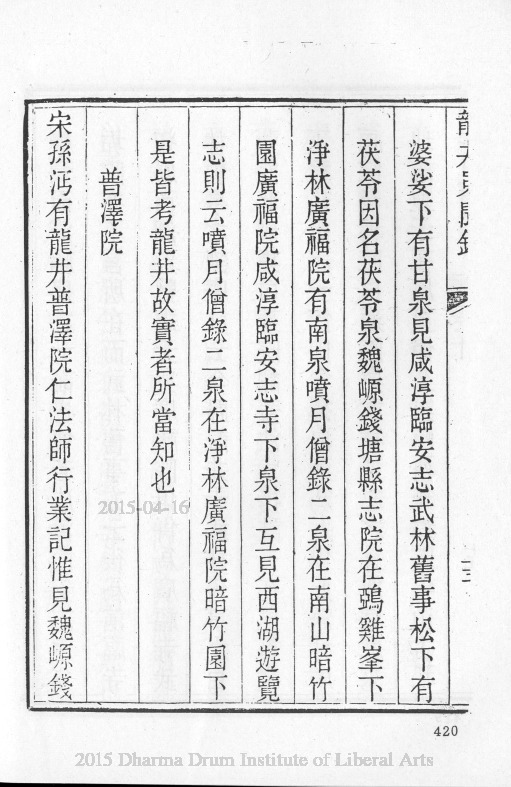 龍井見聞錄
十三
婆娑下有甘泉見咸淳臨安志武林舊事松下有
茯苓因名茯苓泉魏㟲錢塘縣志院在鵶雞峯下
淨林廣福院有南泉噴月僧錄二泉在南山暗竹
園廣福院咸淳臨安志寺下泉下互見西湖遊覽
志則云噴月僧錄二泉在淨林廣福院暗竹園下
是皆考龍井故實者所當知也
普澤院
宋孫沔有龍井普澤院仁法師行業記惟見魏㟲錢
2015-04-16
420
2015 Dharma Drum Institute of Liberal Arts